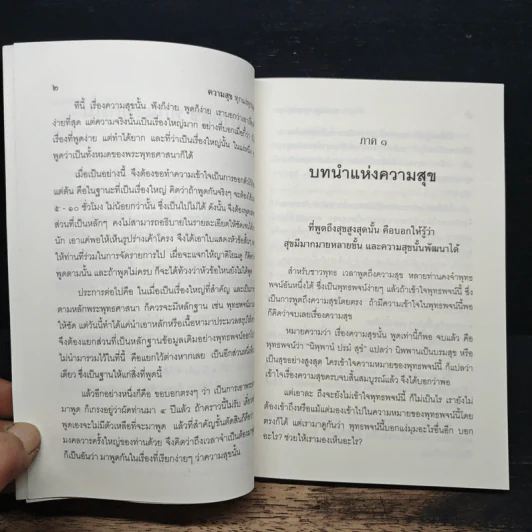 ๒
ความสุข
ทีนี้ เรื่องความสุขนั้น ฟังก็ง่าย พูดก็ง่าย
ง่ายที่สุด แต่ความจริงนั้นเป็นเรื่องใหญ่มาก
เรื่องที่พูดง่าย แต่ทำได้ยาก และที่ว่าเป็นเรื่องใหญ่นั้น
พูดว่าเป็นทั้งหมดของพระพุทธศาสนาก็ได้
เมื่อเป็นอย่างนี้ จึงต้องขอทำความเข้าใจเป็นการออกตัวไว้
แต่ต้น คือในฐานะที่เป็นเรื่องใหญ่ คิดว่าถ้าพูดกันจริงๆ จะต้อง
๕ - ๑๐ ชั่วโมง ไม่น้อยกว่านั้น ซึ่งเป็นไปไม่ได้ ดังนั้น จึงต้อง
ส่วนที่เป็นหลักๆ คงไม่สามารถอธิบายในรายละเอียดให้ชัดเจน
นัก เอาแต่พอให้เห็นรูปร่างเค้าโครง จึงได้เอาใบแสดงหัวข้อ
ให้ท่านที่ร่วมในการจัดรายการไป เมื่อจะแจกให้ญาติโยมดู ก็
พูดตามนั้น และถ้าพูดไม่ครบ ก็จะได้ท้วงว่าหัวข้อไหนยังไม่ได้พูด
ประการต่อไปคือ ในเมื่อเป็นเรื่องใหญ่ที่สำคัญ และเป็น
ตามหลักพระพุทธศาสนา ก็ควรจะมีหลักฐาน เช่น พุทธพจน์
ให้ชัด แต่วันนี้ทำได้แค่นำเอาหลักหรือเนื้อหามาประมวลสรุป
จึงต้องแยกส่วนที่เป็นหลักฐานข้อมูลเดิมอย่างพุทธพจน์
ไม่นำมารวมไว้ในที่นี้ คือแยกไว้ต่างหากเลย เป็นอีกส่วนหนึ่ง
เดียว ซึ่งเป็นฐานให้แก่สิ่งที่พูดนี้
แล้วอีกอย่างหนึ่งก็คือ ขอบอกตรงๆ ว่า เป็นการเอา
มาพูด ก็เกรงอยู่ว่าผัดท่านมา ๔ ปีแล้ว ถ้าคราวนี้ไม่รับ
พูดเองจะไม่มีตัวเหลือที่จะมาพูด แล้วที่สำคัญขั้นตัดสินก็คือ
มงคลวารครั้งใหญ่ของท่านด้วย จึงคิดว่าถึงเวลาจำเป็นต้อง
ก็เป็นอันว่า มาพูดกันในเรื่องที่เรียกง่ายๆ ว่าความสุขนั้น
ภาค ๑
บทนำแห่งความสุข
ที่พูดถึงสุขสูงสุดนั้น คือบอกให้รู้ว่า
สุขมีมากมายหลายขั้น และความสุขนั้นพัฒนาได้
สำหรับชาวพุทธ เวลาพูดถึงความสุข หลายท่านคงจำพุทธ
พจน์อันหนึ่งได้ ซึ่งเป็นพุทธพจน์ง่ายๆ แล้วถ้าเข้าใจพุทธพจน์นี้ ซึ่ง
เป็นการพูดถึงความสุขโดยตรง ถ้ามีความเข้าใจในพุทธพจน์นี้พอ
ก็คิดว่าจบเลยเรื่องความสุข
หมายความว่า เรื่องความสุขนั้น พูดเท่านี้ก็พอ จบ แล้ว คือ
พุทธพจน์ว่า “นิพฺพานํ ปรมํ สุขํ” แปลว่า นิพพานเป็นบรมสุข หรือ
เป็นสุขอย่างสูงสุด ใครเข้าใจความหมายของพุทธพจน์นี้ ก็แปลว่า
เข้าใจเรื่องความสุขครบจบสิ้นสมบูรณ์แล้ว จึงได้บอกว่าพอ
แต่เอาละ ถึงจะยังไม่เข้าใจพุทธพจน์นี้ ก็ไม่เป็นไร เรายังไม่
ต้องเข้าถึงหรือแม้แต่มองเข้าไปในความหมายของพุทธพจน์นี้โดย
ตรงก็ได้ แต่เรามาดูกันว่า พุทธพจน์นี้บอกแง่มุมอะไรขึ้นอีก บอก
อะไร? ช่วยให้เรามองเห็นอะไร?